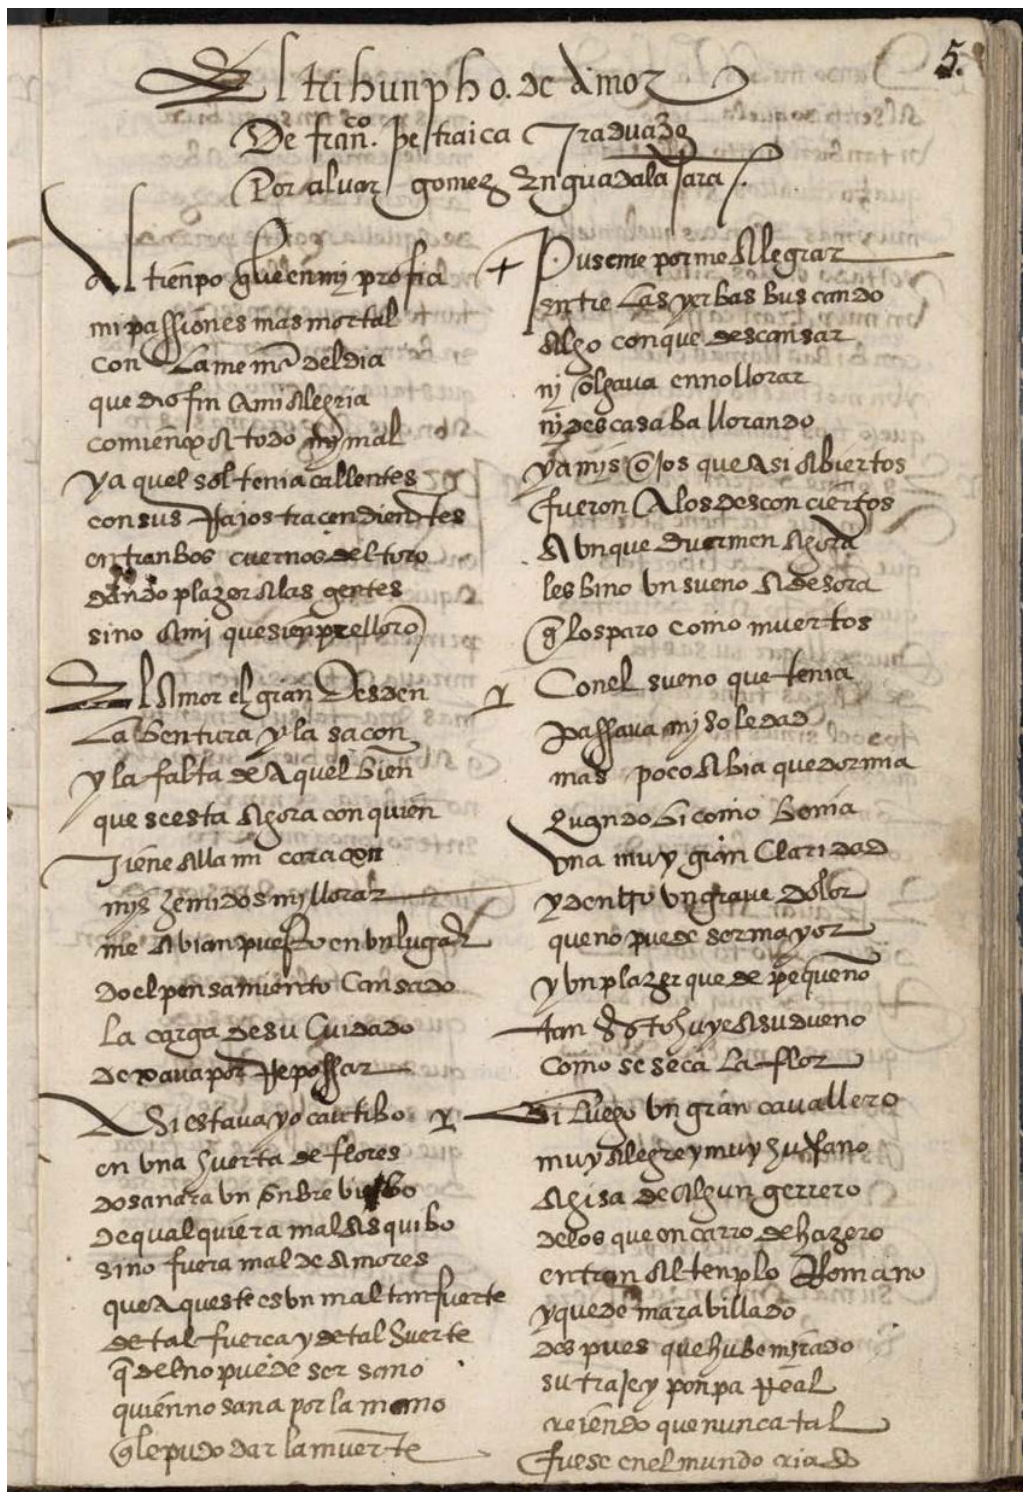 5.
El trihunpho. de Amor
De fran.co petrarca Traduzido
Por alvar gomez En guadalajara
Al tienpo que en mi profia
mi passion es mas mortal
con La mem.a del dia
que dio fin A mi Alegria
comienço A todo my mal
y a quel sol tenia callentes
con sus Rajos tracendientes
entranbos cuernos del toro
dando plazer A las gentes
sino A mi que sienpre lloro
El Amor el gran Desden
La bentura y la saçon
y la falta de A quel bien
que se esta Agora con quien
Tiene alla mi coraçon
mys Zemidos my llorar
me Abian puesto en vn lugar
do el pensamiento Cansado
la carga de su Cuidado
dexava por Repossar
Asi estava yo cautibo
en vna huerta de flores
do sanara vn onbre vibo
de qual quiera mal Asquibo
sino fuera mal de Amores
que A queste es vn mal tan fuerte
de tal fuerça y de tal Suerte
q̃ del no puede ser sano
quien no sana por la mano
q̃ le pudo dar la muerte
Puseme por me Allegrar
entre Las yerbas buscando
Algo con que descansar
ny olgava en no llorar
ny descasaba llorando
y a mys ojos que Asi Abiertos
fueron A los desconciertos
A vnque duermen Agora
les bino vn sueno A desora
q̃ los paro como muertos
Con el sueno que tenia
passava my soledad
mas poco Abia que dormia
quando bi como benia
vna muy gran Claridad
y dentro vn grave dolor
que no puede ser mayor
y vn plazer que de pequeno
tan presto huye A su dueno
como se seca La flor
Bi Luego vn gran cavallero
muy Alegre y muy hufano
A gisa de Algun gerrero
de los que en carro de hazero
entran Al tenplo Romano
y quede marabillado
despues que hube mirado
su traje y ponpa Real
creiendo que nunca tal
fuese en el mundo criado